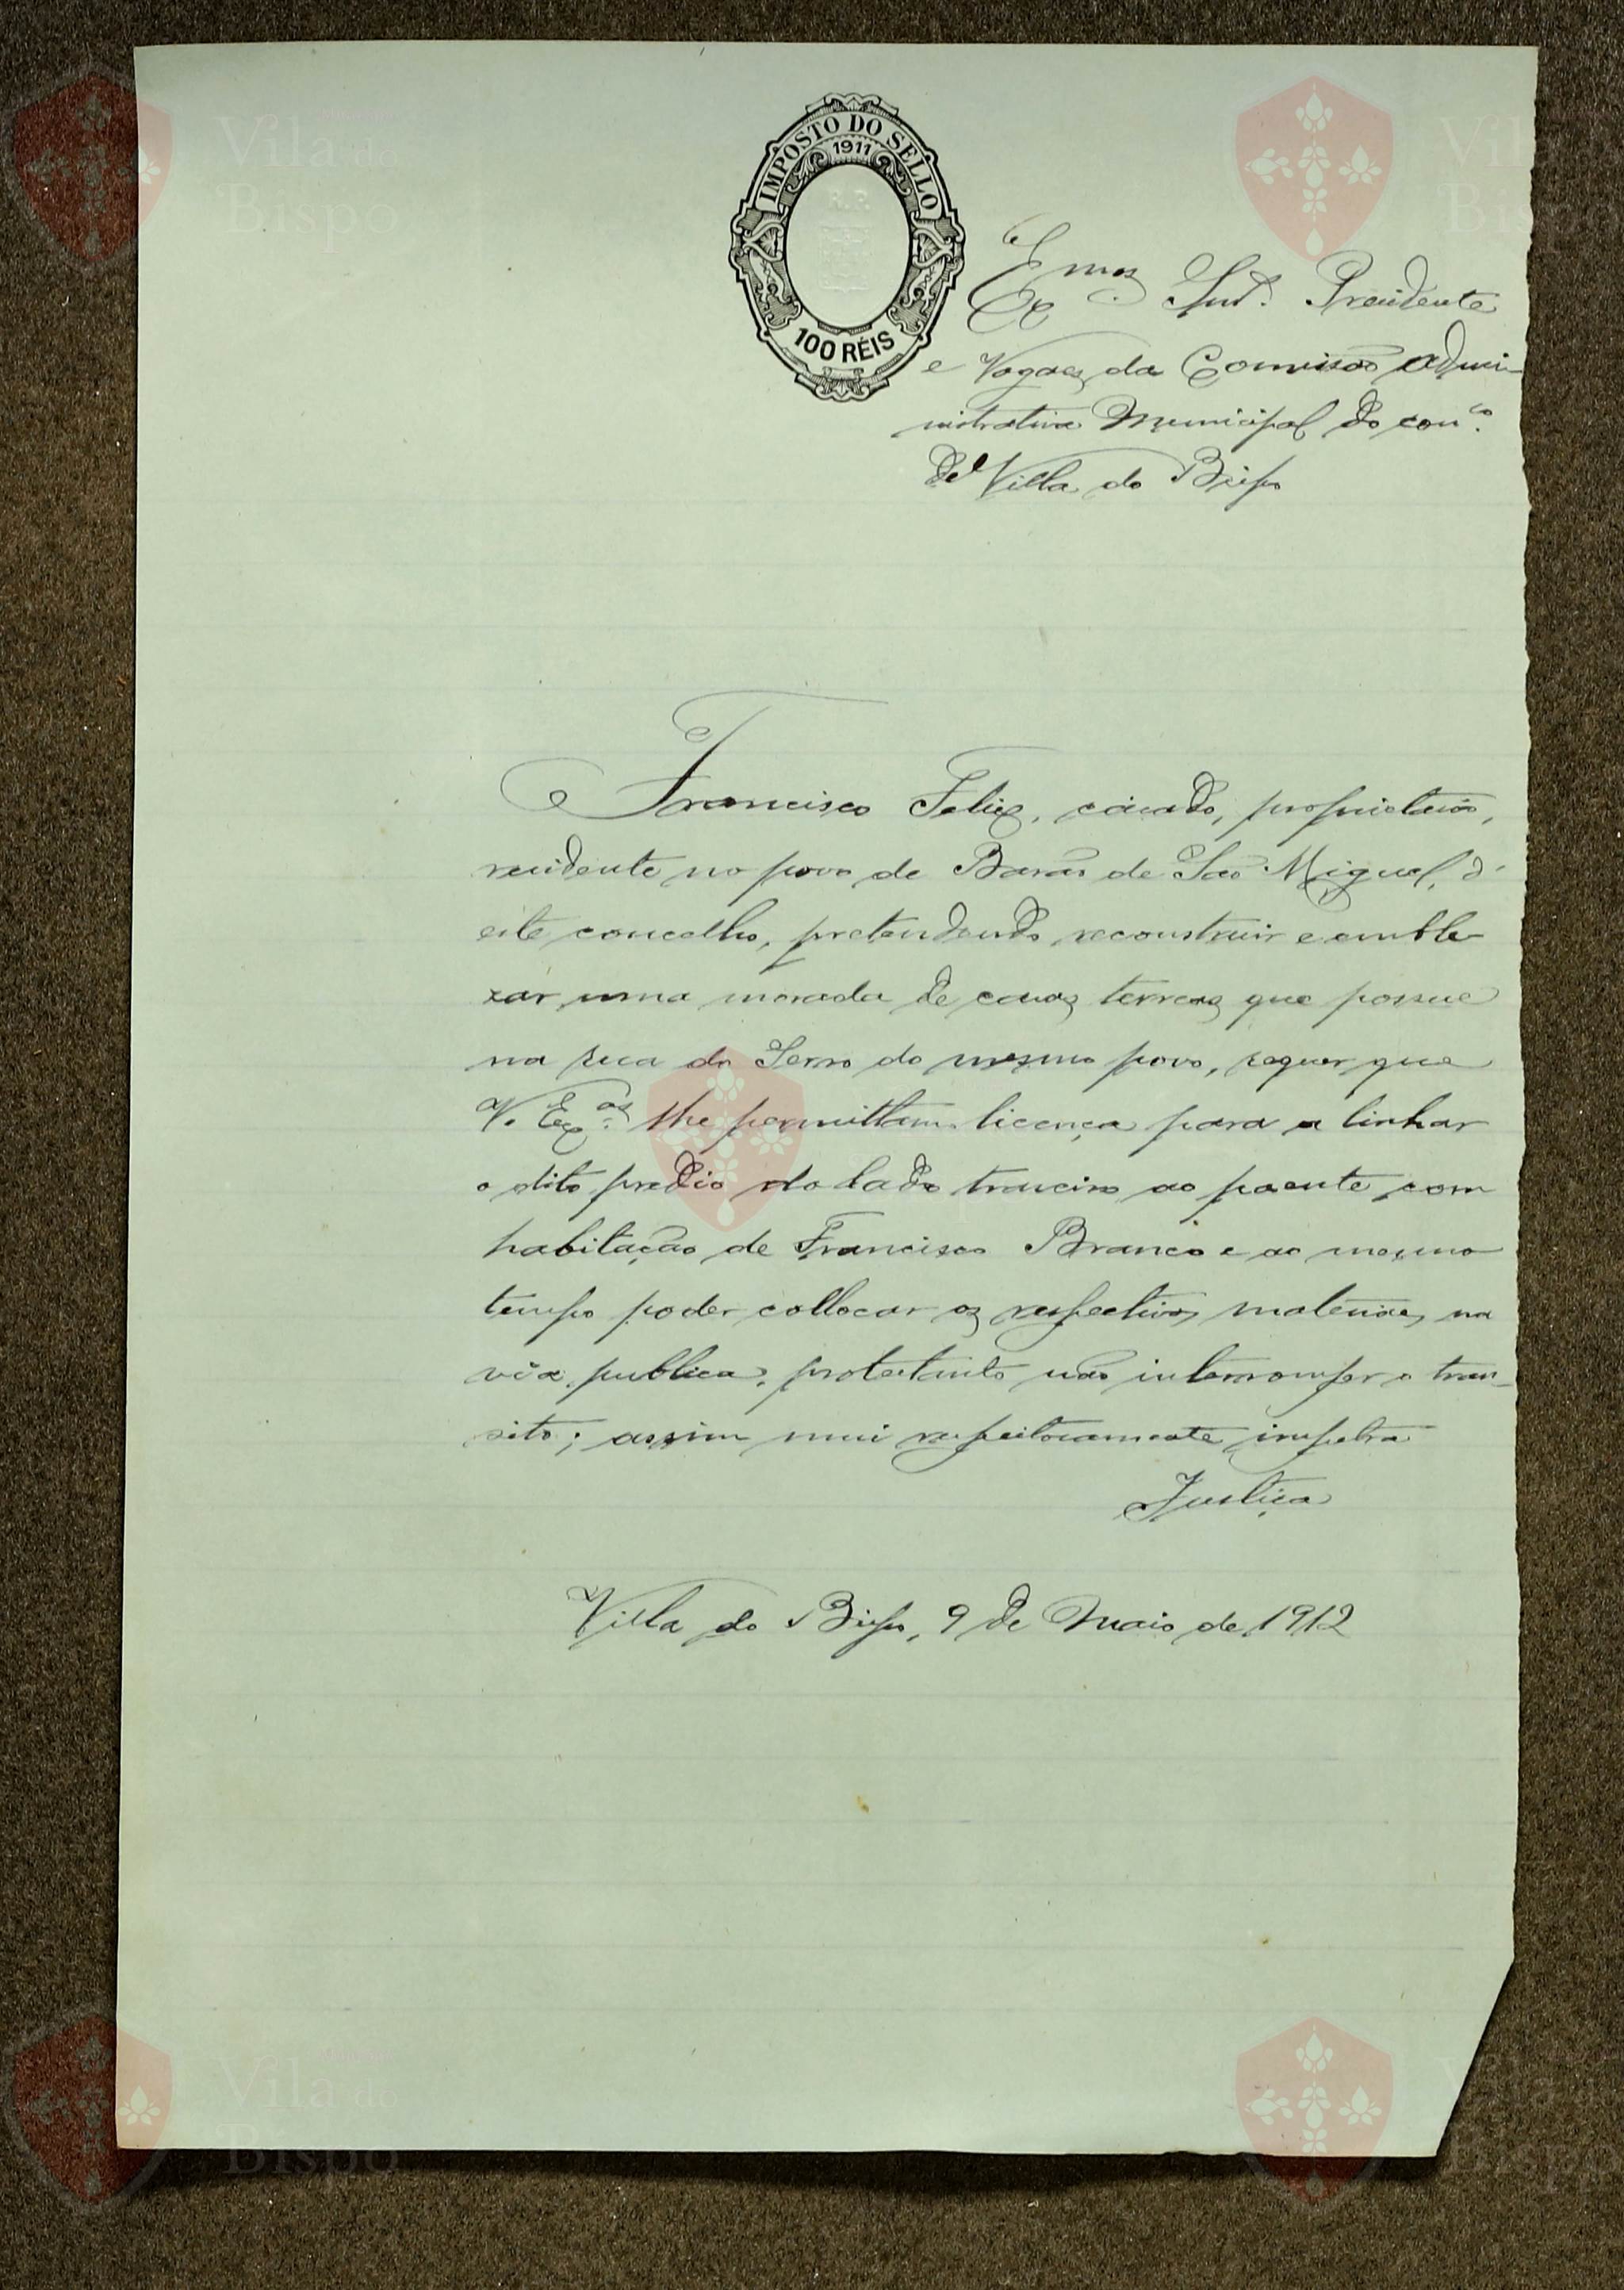 IMPOSTO DO SELLO
1911
100 RÉIS
Ex.mos Snr.s Presidente
e Vogaes da Comissão Admi-
nistrativa Municipal do con.co
de Villa do Bispo
Francisco Feliz, casado, proprietario,
residente no povo de Barão de São Miguel, d'
este concelho, pretendendo reconstruir e emble-
zar uma morada de casas terreas que possue
na rua do Serro do mesmo povo, requer que
V. Ex.as lhe permittam licença para a linhar
o dito predio do lado trazeiro ao poente com
habitação de Francisco Branco e ao mesmo
tempo poder collocar os respectivos materiaes na
via publica, protestando não interromper o tran-
sito; assim mui respeitosamente impetra
Justiça
Villa do Bispo, 9 de Maio de 1912
Vila do
Bispo
Vila do
Bispo